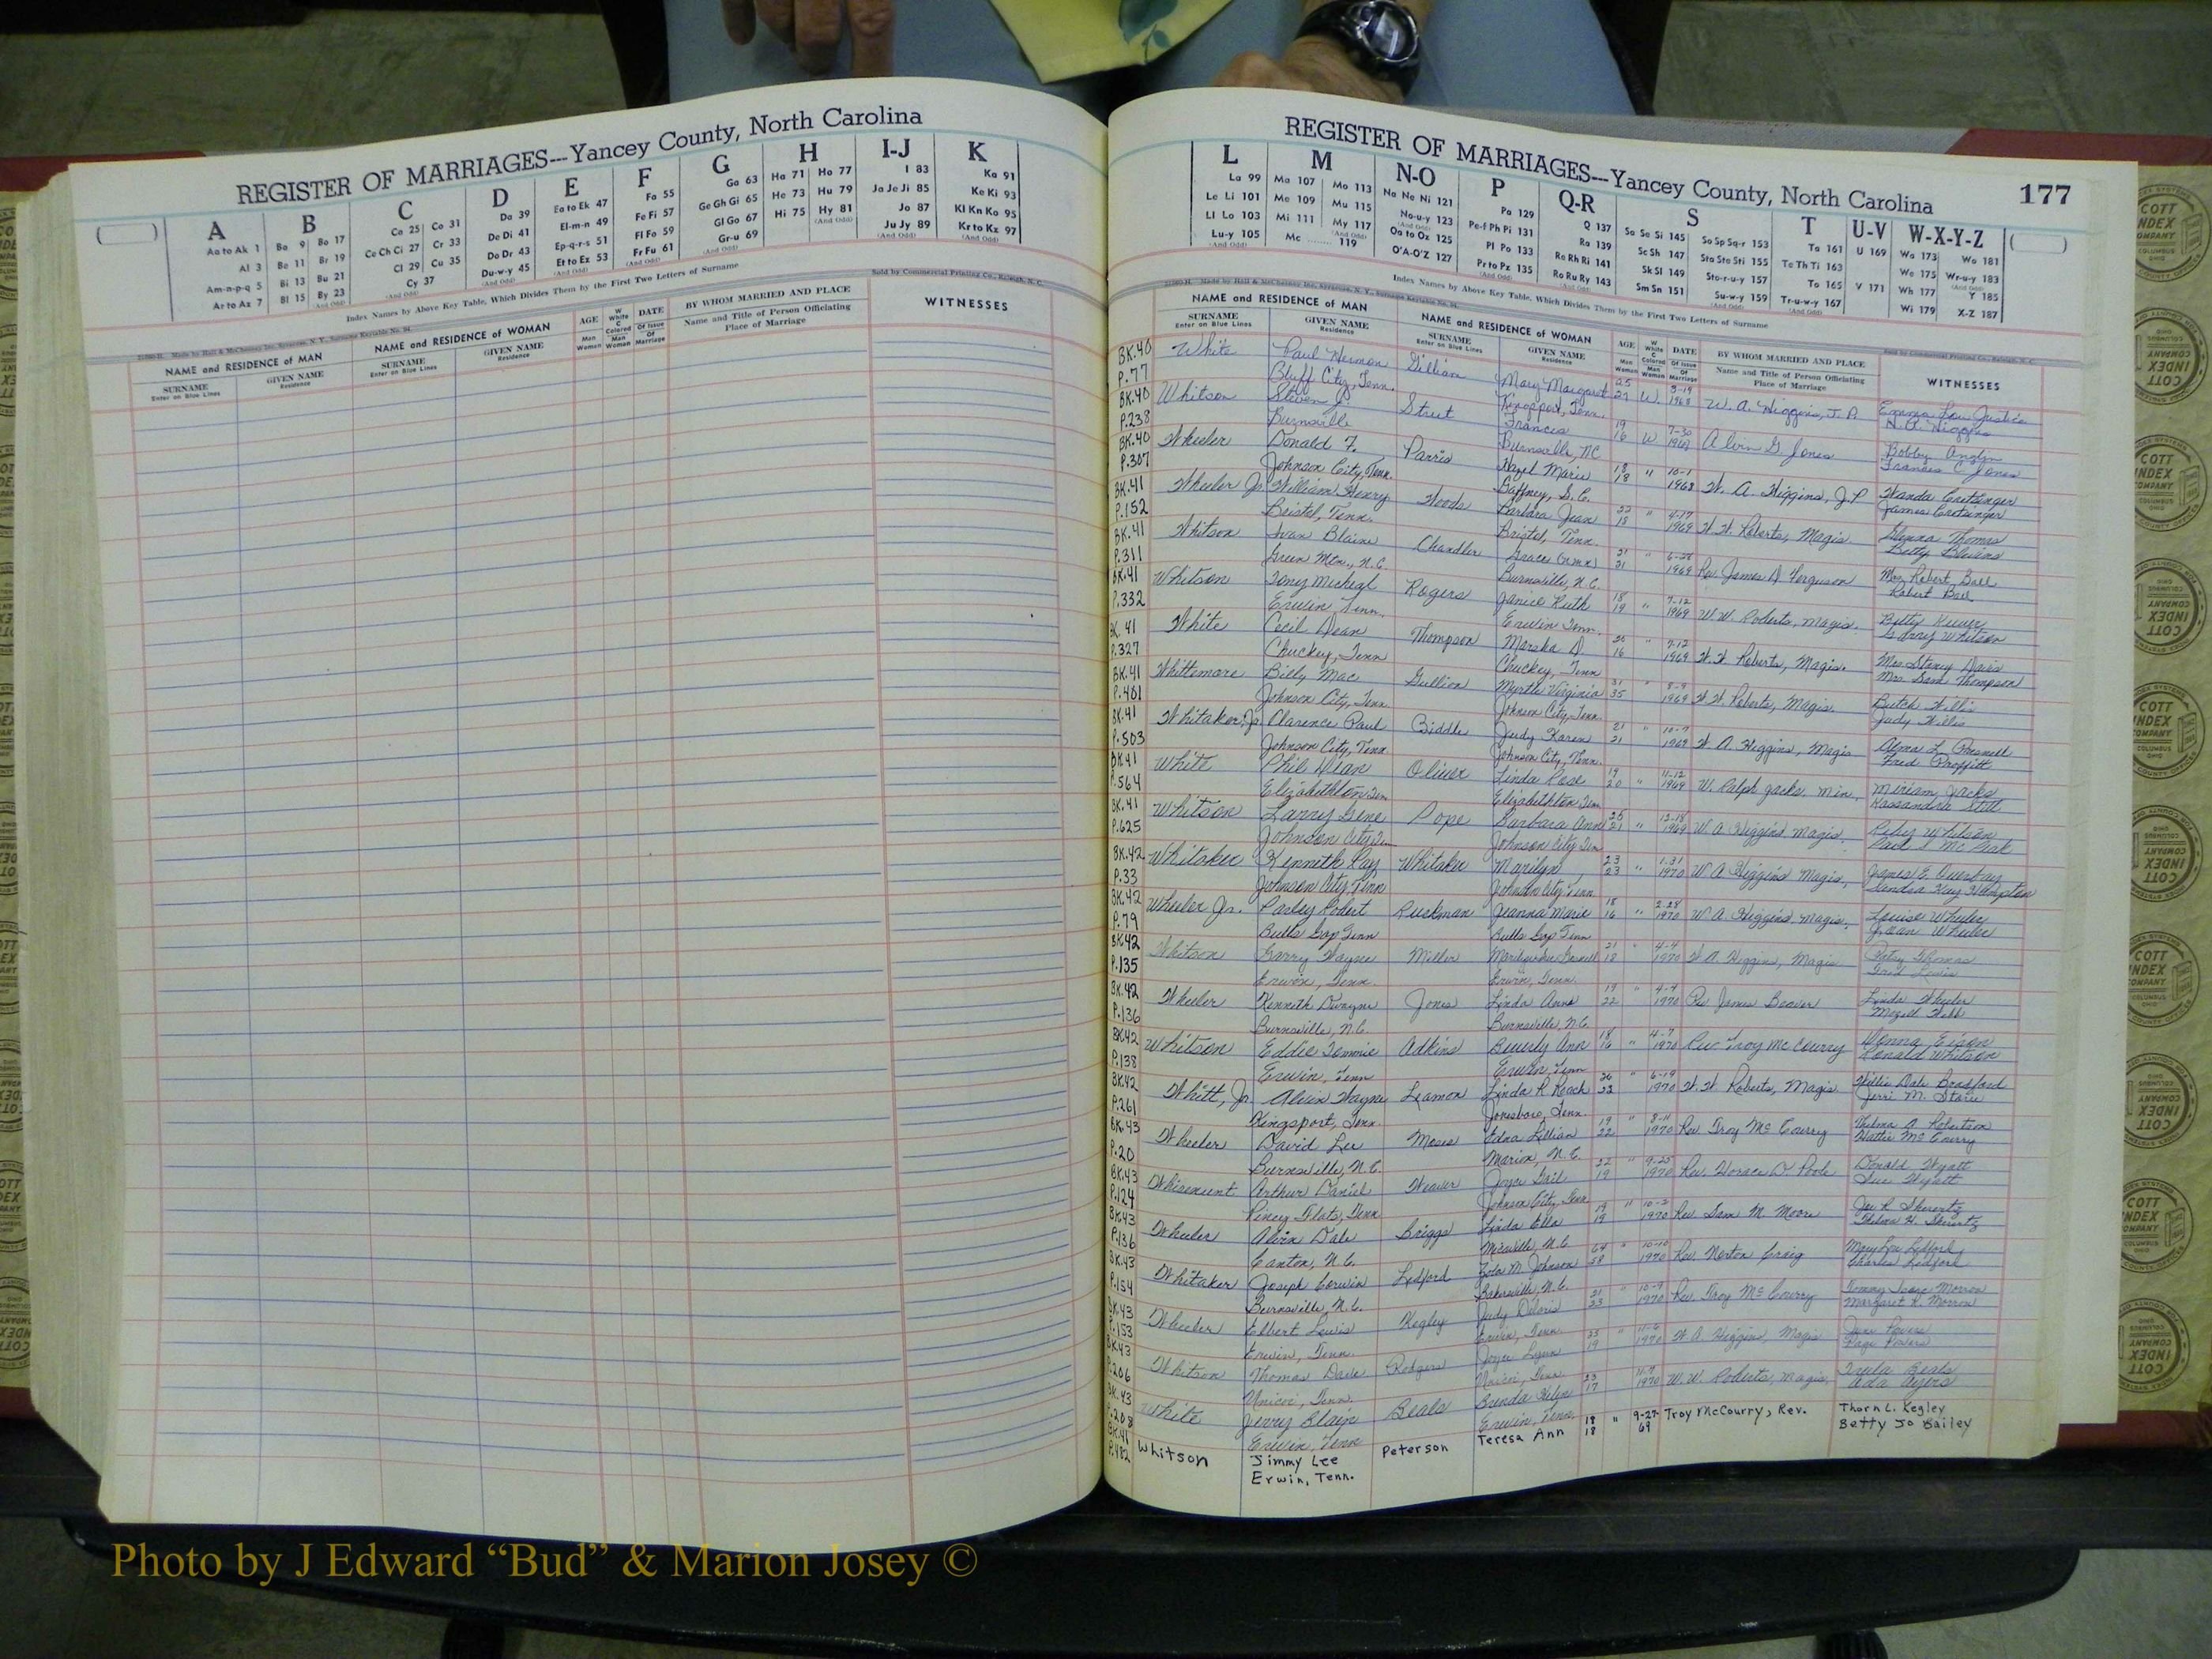 REGISTER OF MARRIAGES---Yancey County, North Carolina
A B C D E F G H I-J K
Aa to Ak 1
Al 3
Am-n-p-q 5
Ar to Az 7
Ba 9
Be 11
Bi 13
Bl 15
Bo 17
Br 19
Bu 21
By 23
Ca 25
Ce Ch Ci 27
Cl 29
Co 31
Cr 33
Cu 35
Cy 37
Da 39
De Di 41
Do Dr 43
Du-w-y 45
Ea to Ek 47
El-m-n 49
Ep-q-r-s 51
Et to Ez 53
Fa 55
Fe Fi 57
Fl Fo 59
Fr Fu 61
Ga 63
Ge Gh Gi 65
Gl Go 67
Gr-u 69
Ha 71
He 73
Hi 75
Ho 77
Hu 79
Hy 81
I 83
Ja Je Ji 85
Jo 87
Ju Jy 89
Ka 91
Ke Ki 93
Kl Kn Ko 95
Kr to Kz 97
Index Names by Above Key Table, Which Divides Them by the First Two Letters of Surname
Sold by Commercial Printing Co., Raleigh, N. C.
NAME and RESIDENCE of MAN
SURNAME
Enter on Blue Lines
GIVEN NAME
Residence
NAME and RESIDENCE of WOMAN
SURNAME
Enter on Blue Lines
GIVEN NAME
Residence
AGE
Man
Woman
W
White
C
Colored
Man
Woman
DATE
Of Issue
Of
Marriage
BY WHOM MARRIED AND PLACE
Name and Title of Person Officiating
Place of Marriage
WITNESSES
REGISTER OF MARRIAGES---Yancey County, North Carolina
177
L M N-O P Q-R S T U-V W-X-Y-Z
La 99
Le Li 101
Ll Lo 103
Lu-y 105
Ma 107
Me 109
Mi 111
Mc 119
Mo 113
Mu 115
My 117
Na Ne Ni 121
No-u-y 123
Oa to Oz 125
O'A-O'Z 127
Pa 129
Pe-f Ph Pi 131
Pl Po 133
Pr to Pz 135
Q 137
Ra 139
Re Rh Ri 141
Ro Ru Ry 143
Sa Se Si 145
Sc Sh 147
Sk Sl 149
Sm Sn 151
So Sp Sq-r 153
Sta Ste Sti 155
Sto-r-u-y 157
Su-w-y 159
Ta 161
Te Th Ti 163
To 165
Tr-u-w-y 167
U 169
V 171
Wa 173
We 175
Wh 177
Wi 179
Wo 181
Wr-u-y 183
Y 185
X-Z 187
Index Names by Above Key Table, Which Divides Them by the First Two Letters of Surname
NAME and RESIDENCE of MAN
SURNAME
Enter on Blue Lines
GIVEN NAME
Residence
NAME and RESIDENCE of WOMAN
SURNAME
Enter on Blue Lines
GIVEN NAME
Residence
AGE
Man
Woman
DATE
Of Issue
Of
Marriage
BY WHOM MARRIED AND PLACE
Name and Title of Person Officiating
Place of Marriage
WITNESSES
BK.40 White Paul Mary Margaret 25 W. 1968 W. A. Higgins, J.P. Emma Lou Justice
P.77 Bluff City, Tenn.
BK.40 Whitson Steven Street Frances 19 16 W 7-30 Alvin G. Jones Bobby
P.238 Burnsville Burnsville, NC Frances C. Jones
BK.40 Wheeler Donald F. Parris Hazel Marie 18 18 " 10-1 1968 W. A. Higgins, J.P. Wanda Cretsinger
P.307 Johnson City, Tenn. Gaffney, S.C. James Cretsinger
BK.41 Wheeler Jr. William Henry Woods Barbara Jean 22 18 " 4-17 1969 W. W. Roberts, Magis. Glenna Thomas
P.152 Bristol, Tenn. Bristol, Tenn. Betty Blevins
BK.41 Whitson Ivan Blaine Chandler Grace 21 21 " 6-28 1969 Rev. James A. Ferguson Mrs. Robert Ball
P.311 Green Mtn., N.C. Burnsville, N.C. Robert Ball
BK.41 Whitson Tony Micheal Rogers Janice Ruth 18 19 " 7-12 1969 W. W. Roberts, Magis. Betty
P.332 Erwin, Tenn. Erwin Tenn. Whitson
BK. 41 White Cecil Dean Thompson Marsha D. 20 16 " 7-12 1969 W. W. Roberts, Magis. Mrs. Stoney Davis
P.327 Chuckey, Tenn Chuckey, Tenn Mrs. Sam Thompson
BK.41 Whittemore Billy Mac Gullion Myrtle Virginia 31 35 " 1969 W. W. Roberts, Magis. Butch Willis
P.401 Johnson City, Tenn Johnson City, Tenn. Judy Willis
BK.41 Whitaker, Jr. Clarence Paul Biddle Judy Karen 21 21 " 10-7 1969 W. A. Higgins, Magis Alma L. Presnell
P.503 Johnson City, Tenn Johnson City, Tenn. Fred Proffitt
BK41 White Phil Dean Oliver Linda Rose 19 20 " 11-12 1969 W. Ralph Jacks, Min. Miriam Jacks
P.564 Elizabethton Tenn Elizabethton Tenn Kassandra Still
BK.41 Whitson Larry Gene Pope Barbara Ann 25 21 " 12-18 1969 W. A. Higgins Magis. Whitson
P.625 Johnson City Tenn Johnson City Tenn
BK.42 Whitaker Kenneth Ray Whitaker Marilyn 23 23 " 1-31 1970 W A Higgins Magis, James E.
P.33 Johnson City, Tenn Johnson City, Tenn Sandra Kay Hampton
BK.42 Wheeler Jr. Pasley Robert Ruckman Jeanna Marie 18 16 " 2-28 1970 W. A. Higgins, Magis. Louise Wheeler
P.79 Bulls Gap Tenn Bulls Gap Tenn Wheeler
BK42 Whitson Larry Wayne Miller 21 18 " 4-4 1970 W. A. Higgins, Magis Patsy Thomas
P.135 Erwin, Tenn. Erwin, Tenn. Fred Lewis
BK.42 Wheeler Kenneth Dwayne Jones Linda Anne 19 22 " 4-4 1970 Rev James Beaver Linda Wheeler
P.136 Burnsville, N.C. Burnsville, N.C. Webb
BK42 Whitson Eddie Tommie Adkins Beverly Ann 18 16 " 4-7 1970 Rev Troy McCourry Donna
P.138 Erwin, Tenn Erwin, Tenn Ronald Whitson
BK.42 Whitt, Jr. Alvin Wayne Leamon Linda R Roach 26 23 " 6-19 1970 W. W. Roberts, Magis. Willie Dale Bradford
P.261 Kingsport, Tenn Jonesboro, Tenn. Jerri M.
BK.43 Wheeler David Lee Moses Edna Lillian 19 22 " 8-11 1970 Rev. Troy McCourry Thelma A. Robertson
P.20 Burnsville, N.C. Marion, N.C. Hattie McCourry
BK.43 Whisenunt Arthur Daniel Weaver Joyce Gail 22 19 " 9-25 1970 Rev. Horace D. Poole Donald Wyatt
P.124 Piney Flats, Tenn Johnson City, Tenn Sue Wyatt
BK43 Wheeler Alvin Dale Briggs Linda Ella 19 19 " 10-2 1970 Rev. Sam M. Moore
P.136 Canton, N.C.
BK.43 Whitaker Joseph Corwin Ledford Zola M. Johnson 64 58 " 10-10 1970 Rev. Norton Craig Mary Lou Ledford
P.154 Burnsville, N.C. Bakersville, N.C. Charles Ledford
BK.43 Wheeler Elbert Lewis Kegley Judy Deloris 21 23 " 10-9 1970 Rev. Troy McCourry Tommy Isaac Morrow
P.153 Erwin, Tenn. Erwin, Tenn. Margaret R. Morrow
BK43 Whitson Thomas Dale Rodgers Joyce Lynn 23 19 " 11-6 1970 W. A. Higgins, Magis Powers
P.206 Unicoi, Tenn. Unicoi, Tenn. Page Powers
BK.43 White Jerry Blain Beals Brenda Helen 23 17 11-9 1970 W. W. Roberts, Magis, Beals
P.208 Erwin, Tenn Erwin, Tenn. Ada Ayers
BK.41 Whitson Jimmy Lee Peterson Teresa Ann 18 18 " 9-27-69 Troy McCourry, Rev. Thorn L. Kegley
P.482 Erwin, Tenn. Betty Jo Bailey
Photo by J Edward “Bud” & Marion Josey ©